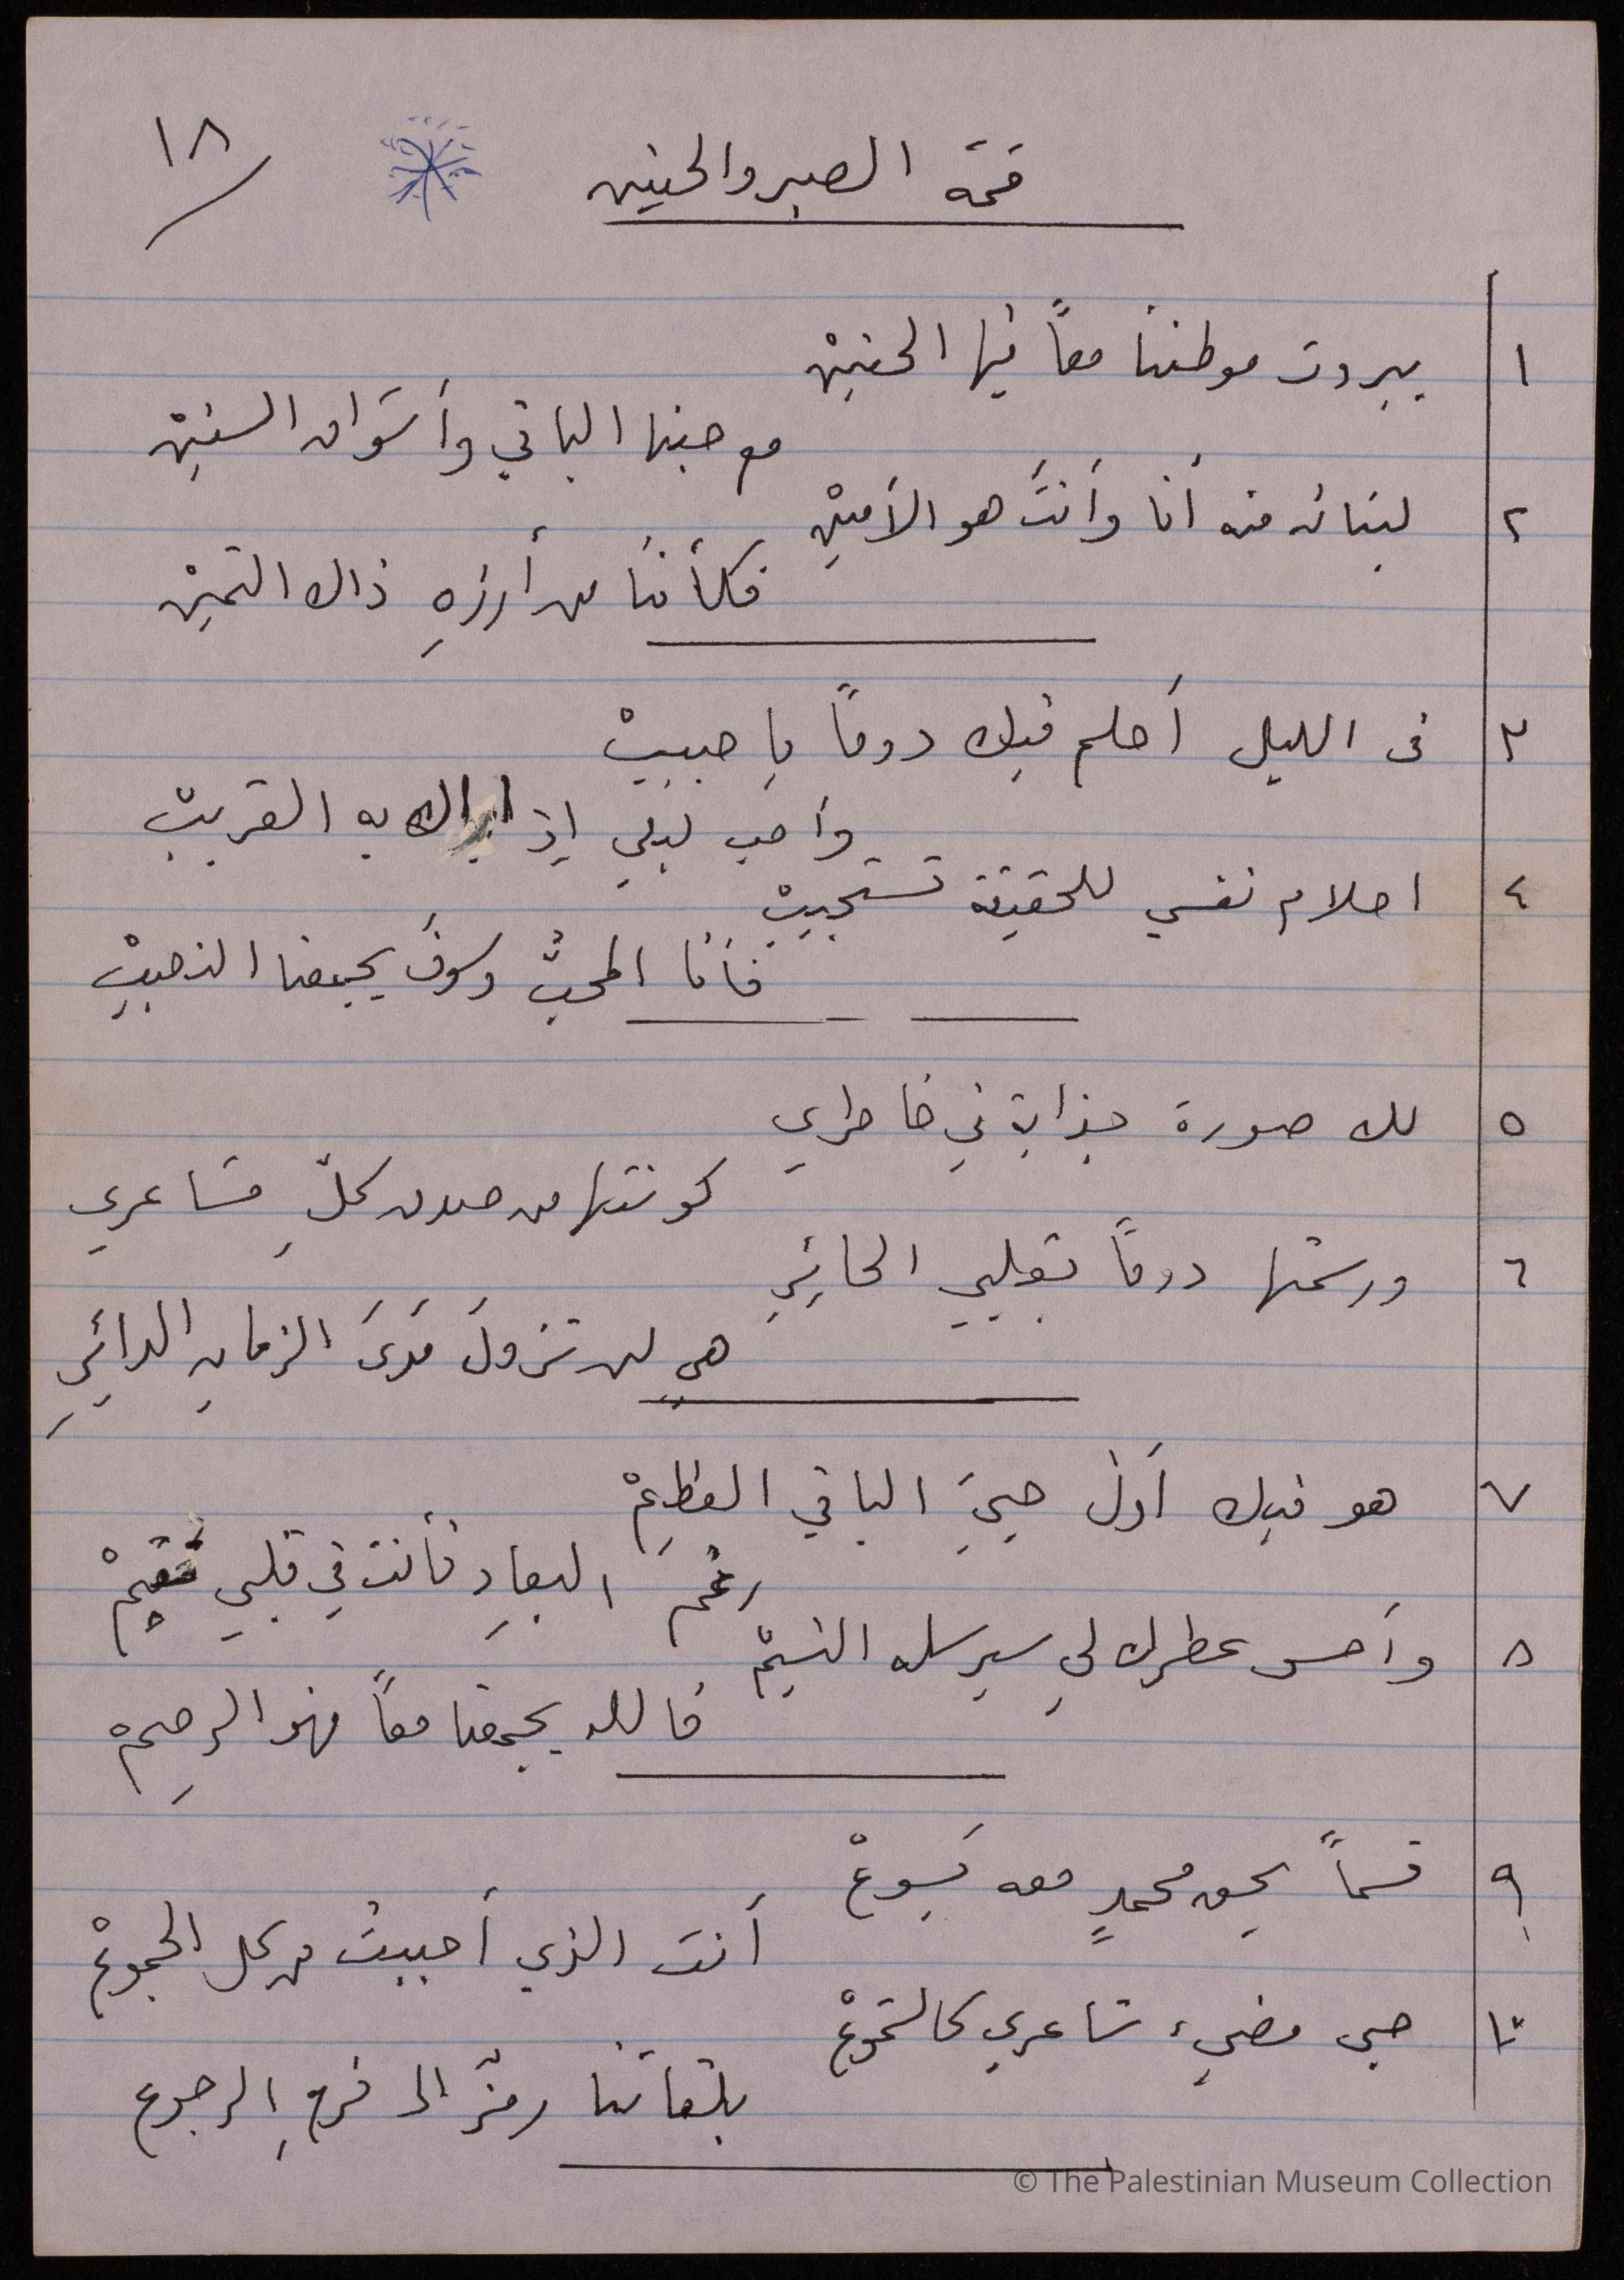 ١٨
قمة الصبر والحنين
١ بيروت موطننا معاً فيها الحنينْ
مع حبنا الباقي وأشواق السنينْ
٢ لبنان منه أنا وأنتَ هو الأمينْ
فكأننا من أرزهِ ذاك الثمينْ
٣ في الليل أحلم فيك دوماً يا حبيبْ
وأحب ليلي إذ اراك به القريبْ
٤ احلام نفسي للحقيقة تستجيبْ
فأنا المحبُّ وسوفَ يجمعنا النحيبْ
٥ لك صورة جذابة في خاطري
كونتها من صدق كلِّ مشاعري
٦ ورسمتها دوماً بقلبي الحائرِ
هي لن تزولَ مَدىَ الزمانِ الدائرِ
٧ هو فيك أول حبيَ الباقي العظيمْ
رغمَ البعادِ فأنت في قلبي مقيمْ
٨ وأحس عطرك لي سيرسله النسيمْ
فالله يجمعنا معاً فهو الرحيمْ
٩ قسماً بحق محمدٍ معه يَسوعْ
أنت الذي أحببتُ من كل الجموعْ
١٠ حبي مضيء شاعري كالشموعْ
بلقائنا رمزٌ الى فرحِ الرجوع
© The Palestinian Museum Collection